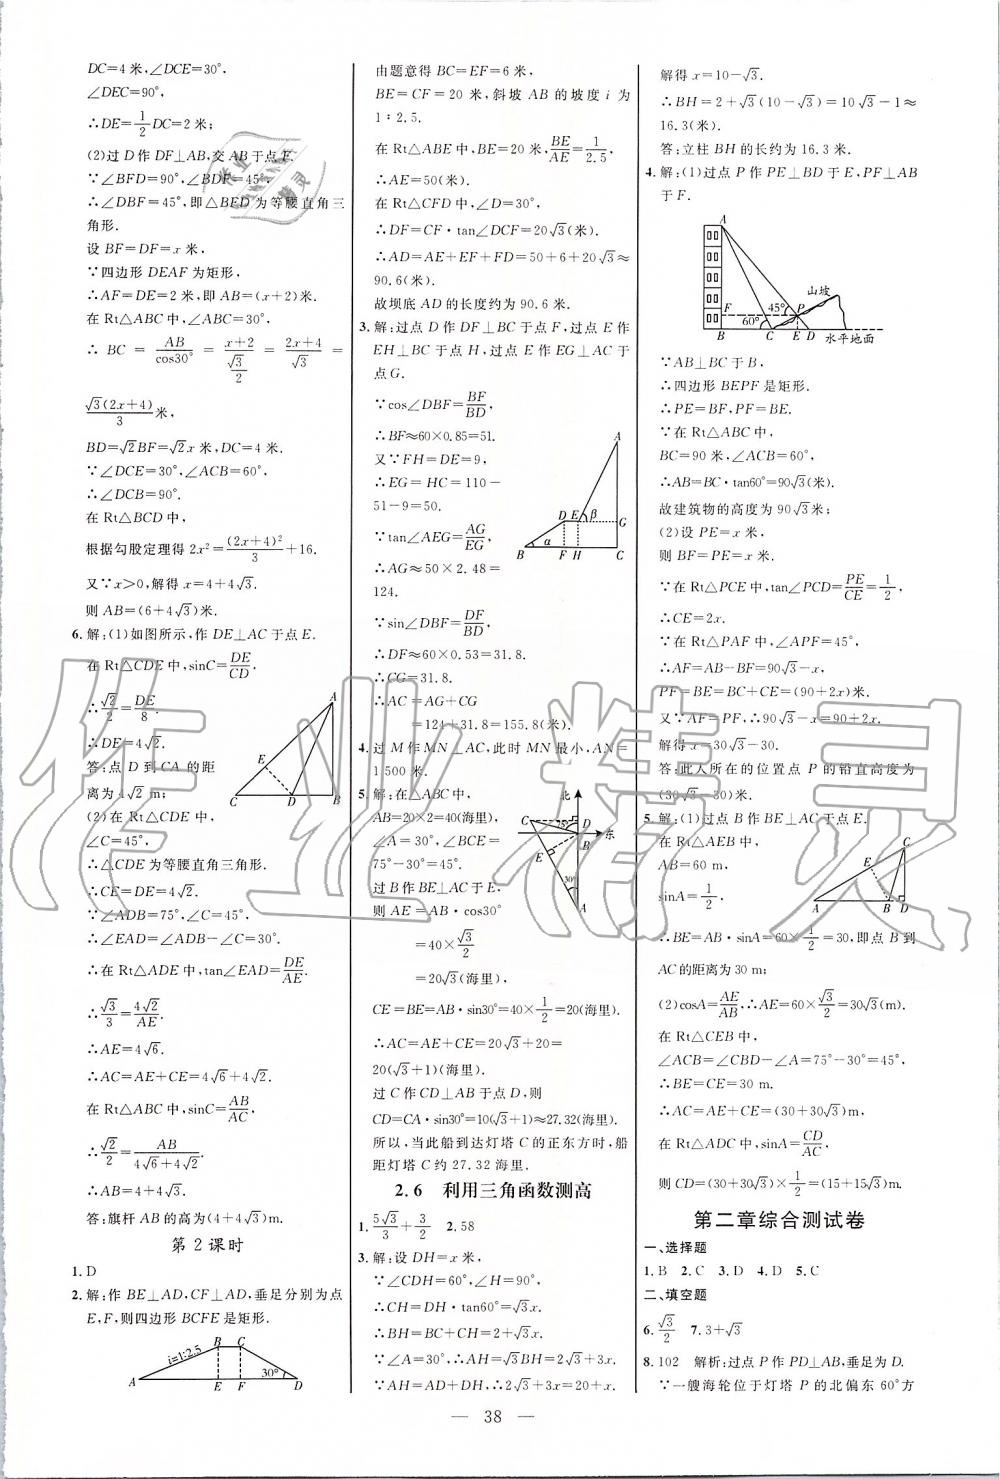 DC=4 米,∠DCE=30°,
∠DEC=90°,
∴DE=1/2 DC=2 米;
(2)过 D 作 DF⊥AB,交 AB 于点 F.
∵∠BFD=90°,∠BDF=45°,
∴∠DBF=45°,即△BED 为等腰直角三
角形.
设 BF=DF=x 米,
∵四边形 DEAF 为矩形,
∴AF=DE=2 米,即 AB=(x+2)米.
在 Rt△ABC 中,∠ABC=30°,
∴ BC = AB/cos30° = (x+2)/(√3/2) = (2x+4)/√3 =
√3(2x+4)/3 米,
BD=√2BF=√2x 米,DC=4 米.
∵∠DCE=30°,∠ACB=60°,
∴∠DCB=90°.
在 Rt△BCD 中,
根据勾股定理得 2x²=(2x+4)²/3+16.
又∵x>0,解得 x=4+4√3.
则 AB=(6+4√3)米.
6. 解:(1)如图所示,作 DE⊥AC 于点 E.
在 Rt△CDE 中,sinC=DE/CD.
∴√2/2=DE/8.
∴DE=4√2.
答:点 D 到 CA 的距
离为 4√2 m;
(2)在 Rt△CDE 中,
∠C=45°,
∴△CDE 为等腰直角三角形.
∴CE=DE=4√2.
∵∠ADB=75°,∠C=45°,
∴∠EAD=∠ADB-∠C=30°.
∴在 Rt△ADE 中,tan∠EAD=DE/AE.
∴√3/3=4√2/AE.
∴AE=4√6.
∴AC=AE+CE=4√6+4√2.
在 Rt△ABC 中,sinC=AB/AC,
∴√2/2=AB/(4√6+4√2).
∴AB=4+4√3.
答:旗杆 AB 的高为(4+4√3)m.
A
E
C D B
第 2 课时
1. D
2. 解:作 BE⊥AD,CF⊥AD,垂足分别为点
E,F,则四边形 BCFE 是矩形.
B C
i=1:2.5
30°
A E F D
由题意得 BC=EF=6 米,
BE=CF=20 米,斜坡 AB 的坡度 i 为
1∶2.5,
在 Rt△ABE 中,BE=20 米,BE/AE=1/2.5,
∴AE=50(米).
在 Rt△CFD 中,∠D=30°,
∴DF=CF·tan∠DCF=20√3(米).
∴AD=AE+EF+FD=50+6+20√3≈
90.6(米).
故坝底 AD 的长度约为 90.6 米.
3. 解:过点 D 作 DF⊥BC 于点 F,过点 E 作
EH⊥BC 于点 H,过点 E 作 EG⊥AC 于
点 G.
∵cos∠DBF=BF/BD,
∴BF≈60×0.85=51.
又∵FH=DE=9,
∴EG=HC=110-
51-9=50.
∵tan∠AEG=AG/EG,
∴AG≈50×2.48=
124.
∵sin∠DBF=DF/BD,
∴DF≈60×0.53=31.8.
∴CG=31.8.
∴AC=AG+CG
=124+31.8=155.8(米).
A
D E β G
B α F H C
4. 过 M 作 MN⊥AC,此时 MN 最小,AN=
1 500 米.
5. 解:在△ABC 中,
AB=20×2=40(海里),
∠A=30°,∠BCE=
75°-30°=45°.
过 B 作 BE⊥AC 于 E,
则 AE=AB·cos30°
=40×√3/2
=20√3(海里),
CE=BE=AB·sin30°=40×1/2=20(海里).
∴AC=AE+CE=20√3+20=
20(√3+1)(海里).
过 C 作 CD⊥AB 于点 D,则
CD=CA·sin30°=10(√3+1)≈27.32(海里).
所以,当此船到达灯塔 C 的正东方时,船
距灯塔 C 约 27.32 海里.
北
C 75° D 东
B
E
30°
A
2.6 利用三角函数测高
1. 5√3/3+3/2 2. 58
3. 解:设 DH=x 米,
∵∠CDH=60°,∠H=90°,
∴CH=DH·tan60°=√3x.
∴BH=BC+CH=2+√3x.
∵∠A=30°,∴AH=√3BH=2√3+3x.
∵AH=AD+DH,∴2√3+3x=20+x.
解得 x=10-√3.
∴BH=2+√3(10-√3)=10√3-1≈
16.3(米).
答:立柱 BH 的长约为 16.3 米.
4. 解:(1)过点 P 作 PE⊥BD 于 E,PF⊥AB
于 F.
A
山坡
F 45° P
60°
B C E D 水平地面
∵AB⊥BC 于 B,
∴四边形 BEPF 是矩形.
∴PE=BF,PF=BE.
∵在 Rt△ABC 中,
BC=90 米,∠ACB=60°,
∴AB=BC·tan60°=90√3(米).
故建筑物的高度为 90√3 米.
(2)设 PE=x 米,
则 BF=PE=x 米.
∵在 Rt△PCE 中,tan∠PCD=PE/CE=1/2,
∴CE=2x.
∵在 Rt△PAF 中,∠APF=45°,
∴AF=AB-BF=90√3-x,
PF=BE=BC+CE=(90+2x)米.
又∵AF=PF,∴90√3-x=90+2x.
解得 x=30√3-30.
答:此人所在的位置点 P 的铅直高度为
(30√3-30)米.
5. 解:(1)过点 B 作 BE⊥AC 于点 E.
在 Rt△AEB 中,
AB=60 m,
sinA=1/2,
∴BE=AB·sinA=60×1/2=30,即点 B 到
AC 的距离为 30 m;
(2)cosA=AE/AB,∴AE=60×√3/2=30√3(m).
在 Rt△CEB 中,
∠ACB=∠CBD-∠A=75°-30°=45°,
∴BE=CE=30 m.
∴AC=AE+CE=(30+30√3)m.
在 Rt△ADC 中,sinA=CD/AC,
则 CD=(30+30√3)×1/2=(15+15√3)m.
C
E
A B D
第二章综合测试卷
一、选择题
1. B 2. C 3. D 4. D 5. C
二、填空题
6. √3/2 7. 3+√3
8. 102 解析:过点 P 作 PD⊥AB,垂足为 D.
∵一艘海轮位于灯塔 P 的北偏东 60°方
— 38 —
作业精灵